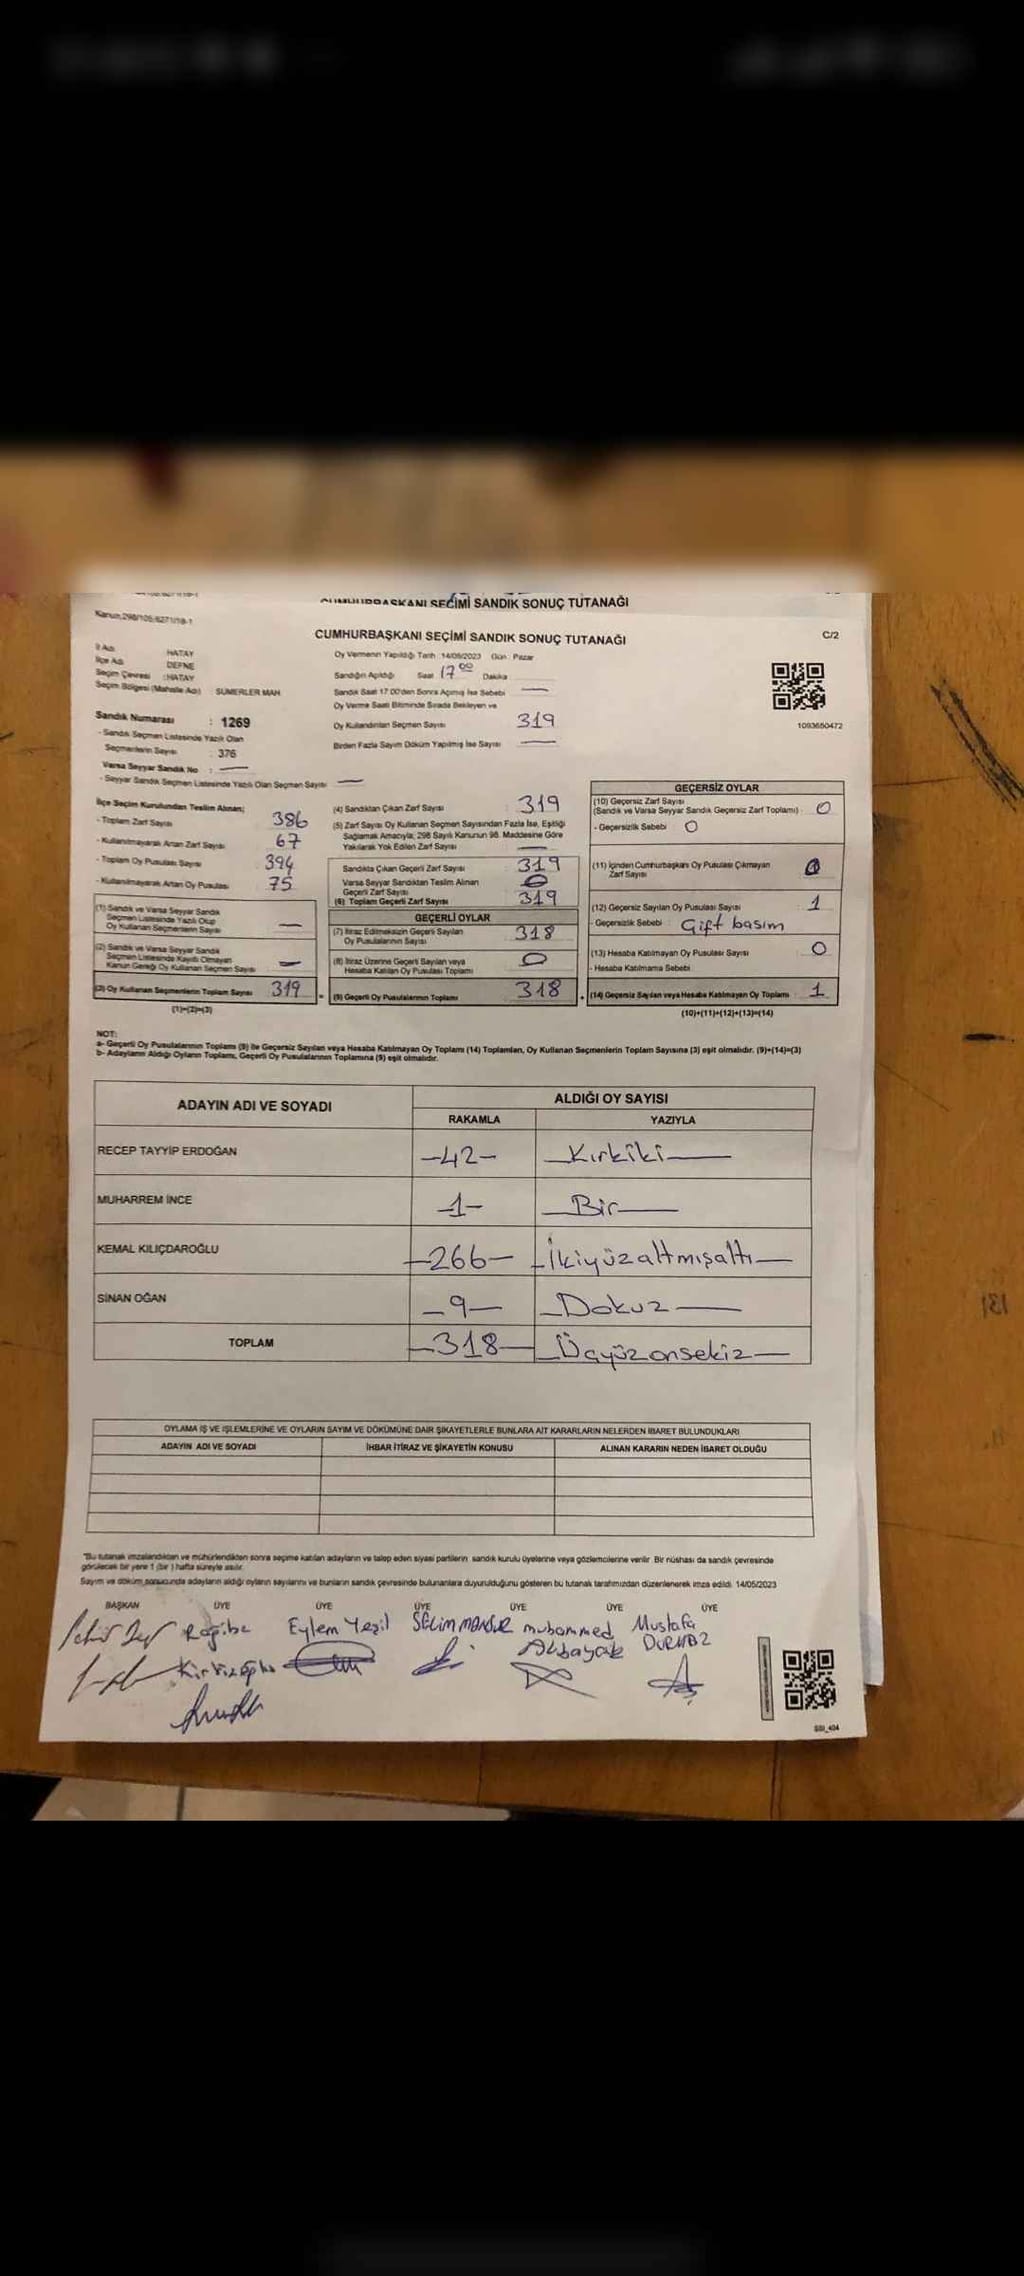 CUMHURBAŞKANI SEÇİMİ SANDIK SONUÇ TUTANAĞI
Kanun:298/105;6271/18-1
CUMHURBAŞKANI SEÇİMİ SANDIK SONUÇ TUTANAĞI
C/2
İl Adı : HATAY
İlçe Adı : DEFNE
Seçim Çevresi : HATAY
Seçim Bölgesi (Mahalle Adı) : SÜMERLER MAH
Sandık Numarası : 1269
- Sandık Seçmen Listesinde Yazılı Olan
Seçmenlerin Sayısı : 376
Varsa Seyyar Sandık No : —
- Seyyar Sandık Seçmen Listesinde Yazılı Olan Seçmen Sayısı —
Oy Vermenin Yapıldığı Tarih 14/05/2023 Gün : Pazar
Sandığın Açıldığı Saat 17 00 Dakika
Sandık Saat 17.00'den Sonra Açılmış İse Sebebi —
Oy Verme Saati Bitiminde Sırada Bekleyen ve
Oy Kullandırılan Seçmen Sayısı 319
Birden Fazla Sayım Döküm Yapılmış İse Sayısı —
1093650472
İlçe Seçim Kurulundan Teslim Alınan;
- Toplam Zarf Sayısı 386
- Kullanılmayarak Artan Zarf Sayısı 67
- Toplam Oy Pusulası Sayısı 394
- Kullanılmayarak Artan Oy Pusulası 75
(1) Sandık ve Varsa Seyyar Sandık
Seçmen Listesinde Yazılı Olup
Oy Kullanan Seçmenlerin Sayısı —
(2) Sandık ve Varsa Seyyar Sandık
Seçmen Listesinde Kayıtlı Olmayan
Kanun Gereği Oy Kullanan Seçmen Sayısı —
(3) Oy Kullanan Seçmenlerin Toplam Sayısı 319
(1)+(2)=(3)
(4) Sandıktan Çıkan Zarf Sayısı 319
(5) Zarf Sayısı Oy Kullanan Seçmen Sayısından Fazla İse, Eşitliği
Sağlamak Amacıyla; 298 Sayılı Kanunun 98. Maddesine Göre
Yakılarak Yok Edilen Zarf Sayısı —
Sandıkta Çıkan Geçerli Zarf Sayısı 319
Varsa Seyyar Sandıktan Teslim Alınan
Geçerli Zarf Sayısı 0
(6) Toplam Geçerli Zarf Sayısı 319
GEÇERLİ OYLAR
(7) İtiraz Edilmeksizin Geçerli Sayılan
Oy Pusulalarının Sayısı 318
(8) İtiraz Üzerine Geçerli Sayılan veya
Hesaba Katılan Oy Pusulası Toplamı 0
(9) Geçerli Oy Pusulalarının Toplamı 318
GEÇERSİZ OYLAR
(10) Geçersiz Zarf Sayısı
(Sandık ve Varsa Seyyar Sandık Geçersiz Zarf Toplamı) : 0
- Geçersizlik Sebebi 0
(11) İçinden Cumhurbaşkanı Oy Pusulası Çıkmayan
Zarf Sayısı
(12) Geçersiz Sayılan Oy Pusulası Sayısı 1
- Geçersizlik Sebebi : Çift basım
(13) Hesaba Katılmayan Oy Pusulası Sayısı 0
- Hesaba Katılmama Sebebi
(14) Geçersiz Sayılan veya Hesaba Katılmayan Oy Toplamı : 1
(10)+(11)+(12)+(13)=(14)
NOT:
a- Geçerli Oy Pusulalarının Toplamı (9) ile Geçersiz Sayılan veya Hesaba Katılmayan Oy Toplamı (14) Toplamları, Oy Kullanan Seçmenlerin Toplam Sayısına (3) eşit olmalıdır. (9)+(14)=(3)
b- Adayların Aldığı Oyların Toplamı, Geçerli Oy Pusulalarının Toplamına (9) eşit olmalıdır.
ADAYIN ADI VE SOYADI
ALDIĞI OY SAYISI
RAKAMLA YAZIYLA
RECEP TAYYİP ERDOĞAN —42— —Kırkiki—
MUHARREM İNCE —1— —Bir—
KEMAL KILIÇDAROĞLU —266— —İkiyüzaltmışaltı—
SİNAN OĞAN —9— —Dokuz—
TOPLAM —318— —Üçyüzonsekiz—
OYLAMA İŞ VE İŞLEMLERİNE VE OYLARIN SAYIM VE DÖKÜMÜNE DAİR ŞİKAYETLERLE BUNLARA AİT KARARLARIN NELERDEN İBARET BULUNDUKLARI
ADAYIN ADI VE SOYADI İHBAR İTİRAZ VE ŞİKAYETİN KONUSU ALINAN KARARIN NEDEN İBARET OLDUĞU
"Bu tutanak imzalandıktan ve mühürlendikten sonra seçime katılan adayların ve talep eden siyasi partilerin sandık kurulu üyelerine veya gözlemcilerine verilir. Bir nüshası da sandık çevresinde
görülecek bir yere 1 (bir) hafta süreyle asılır.
Sayım ve döküm sonucunda adayların aldığı oyların sayılarını ve bunların sandık çevresinde bulunanlara duyurulduğunu gösteren bu tutanak tarafımızdan düzenlenerek imza edildi. 14/05/2023
BAŞKAN ÜYE ÜYE ÜYE ÜYE ÜYE ÜYE
Ragibe Eylem Yeşil SELİM MANSUR muhammed Mustafa
Akbayak DURMAZ
SSI_404
131